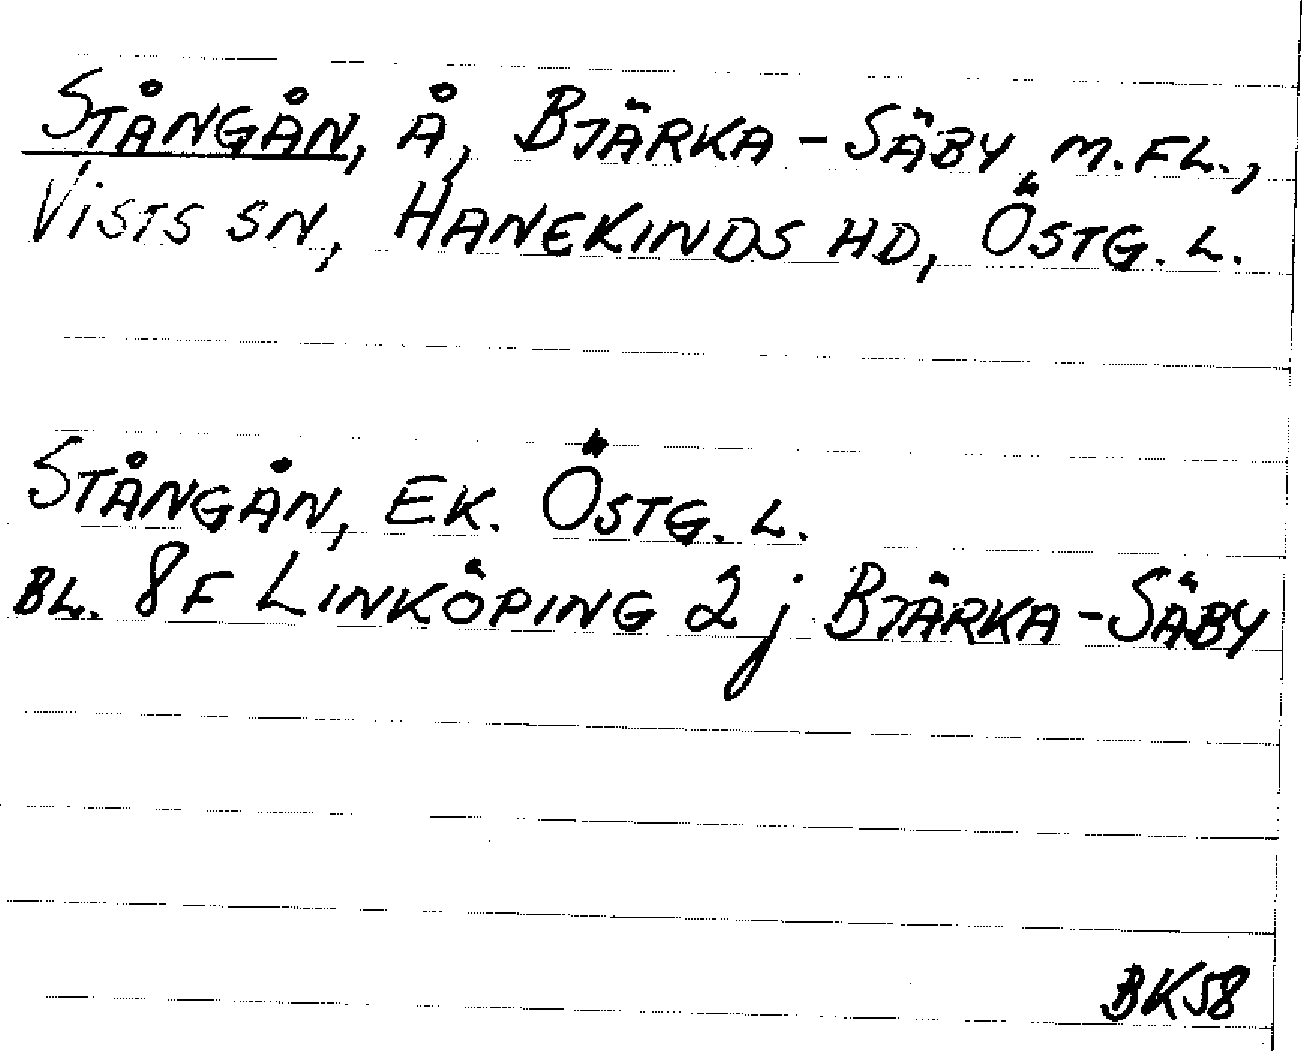 STÅNGÅN, Å, BJÄRKA-SÄBY M.FL.,
VISTS SN, HANEKINDS HD, ÖSTG. L.
STÅNGÅN, EK. ÖSTG. L.
BL. 8F LINKÖPING 2j BJÄRKA-SÄBY
BK58